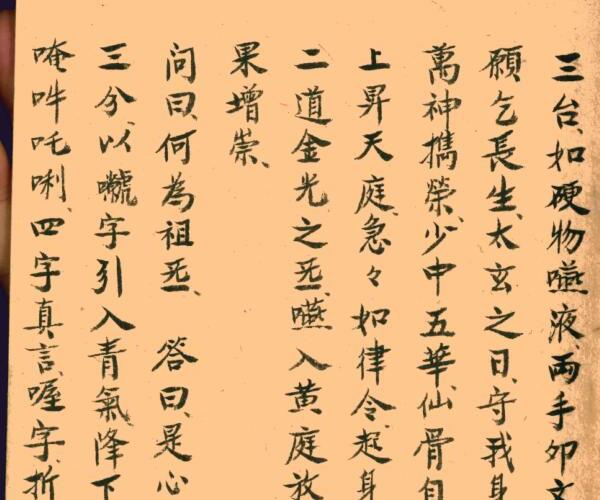 三台、如硬物嚥液兩手卯文
願乞長生、太玄之日、守我身
萬神攜榮、少中五華、仙骨自
上昇天庭、急々如律令、起身
二道金光之炁、嚥入黃庭放
果增崇、
問曰、何為祖炁、 答曰、是心
三分、以嚱字引入青氣降下
唵吽吒唎、四字真言、喔字、折